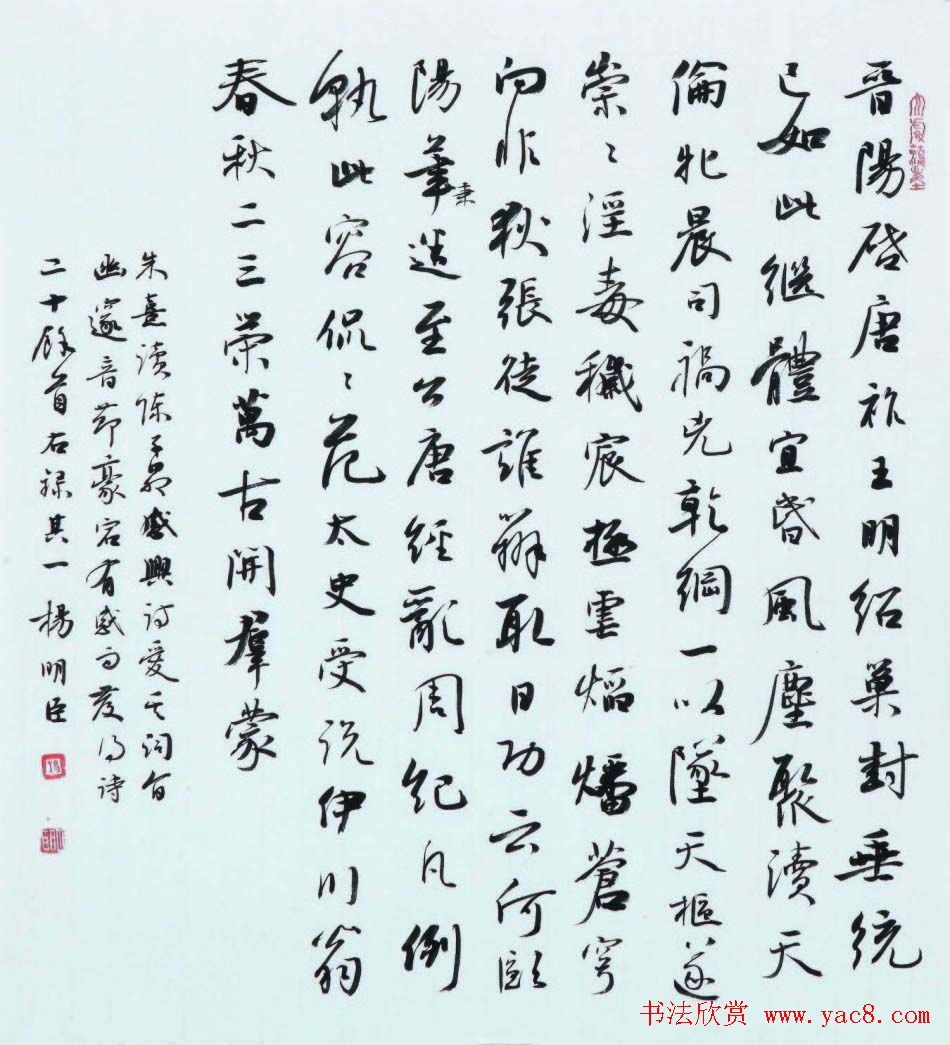 晉陽啓唐祚王明紹巢封垂統
已如此繼體宜昏風塵聚瀆天
倫牝晨司禍凶乾綱一以墜天樞遂
崇〻淫毒穢宸極虐焰燔蒼穹
向非狄張徒誰辦取日功云何歐
陽筆秉迷至公唐經亂周紀凡例
孰此容侃〻范太史受說伊川翁
春秋二三策萬古開羣蒙
朱熹讀陳子昂感興詩愛其詞旨
幽邃音節豪宕有感而發得詩
二十餘首右録其一楊明臣
书法欣赏 www.yac8.com